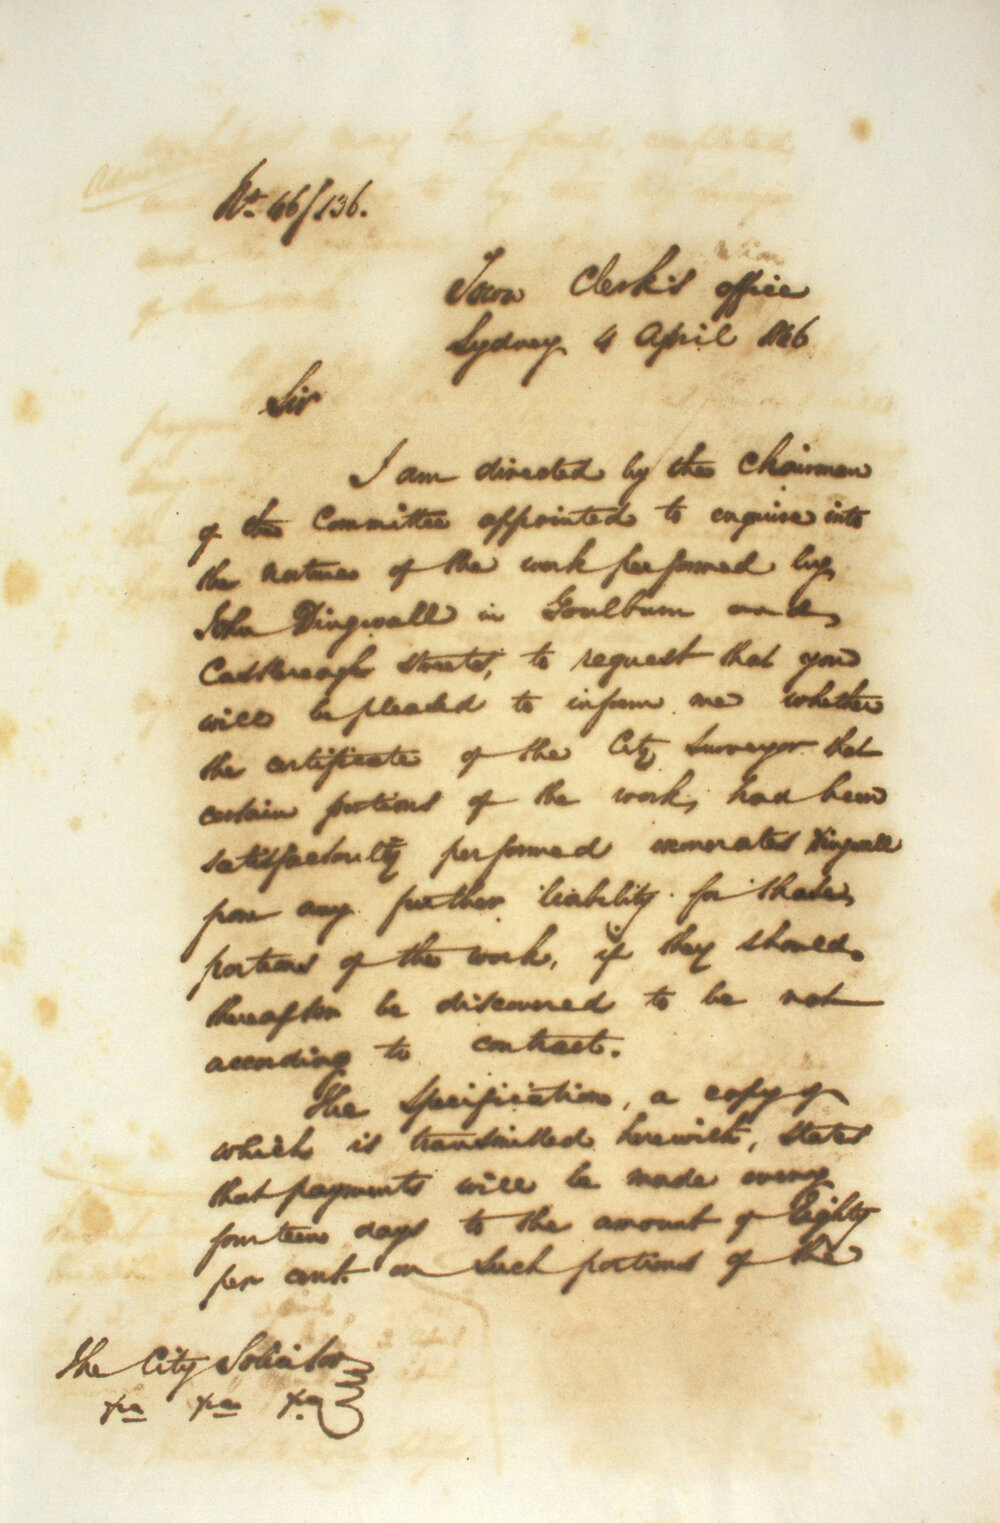 No. 46/136.
Town Clerk's office
Sydney 4 April 1846
Sir
I am directed by the Chairman
of the Committee appointed to enquire into
the nature of the work performed by
John Dingwall in Goulburn and
Castlereagh Streets, to request that you
will be pleased to inform me whether
the certificate of the City Surveyor that
certain portions of the work, had been
satisfactorily performed exonerates Dingwall
from any further liability for those
portions of the work, if they should
thereafter be discovered to be not
according to contract.
The Specification, a copy of
which is transmitted herewith, states
that payments will be made every
fourteen days to the amount of Eighty
per cent. on such portions of the
The City Solicitor